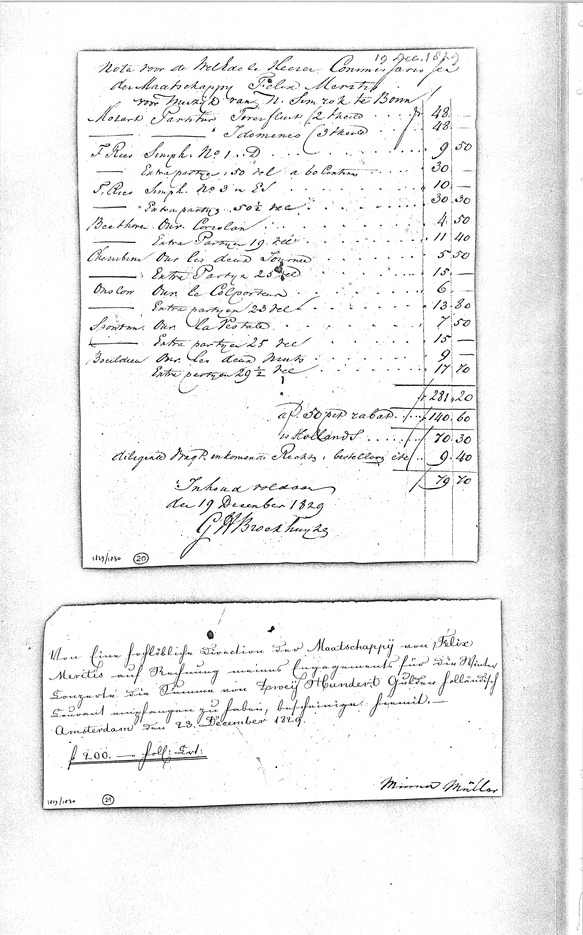 19 Dec. 1829
Nota voor de WelEdele Heeren Commissarissen
der Maatschappy Felix Meritis
voor Muzijk van N. Simrok te Bonn
Mozart Partitur Tooverfluit (2 theile) f 48 —
— Idomeneo (3 theile) 48 —
F. Ries Simph. No 1. D 9 50
— Extra partyen 50 vel a 60 Centimes 30 —
F. Ries Simph. No 3 in Es 10 —
— Extra party 50½ vel 30 30
Beethoven Ouv. Coriolan 4 50
— Extra Partyen 19 vel 11 40
Cherubini Ouv. les deux Journées 5 50
— Extra Partyen 25 vel 15 —
Onslow Ouv. le Colporteur 6 —
— Extra partyen 23 vel 13 80
Spontini Ouv. la Vestale 7 50
— Extra partyen 25 vel 15 —
Boieldieu Ouv. les deux Nuits 9 —
Extra partyen 29½ vel 17 70
f 281,20
af 50 per rabat f 140 60
is Hollands 70 30
diligence Vragt, inkomende Rechten, bestelling etc 9 40
f 79 70
Inhoud voldaan
den 19 December 1829
G W Broekhuyzen
1829/1830 20
Von Eine hochlöbliche Direction der Maatschappij von Felix
Meritis auf Rechnung meines Engagements für die Winter
Conzerte die Summe von Zwey Hundert Gulden holländisch
Courant empfangen zu haben, bescheinige hiermit. —
Amsterdam den 23. December 1829.
f 200. — holl: Crt:
Minna Müller
1829/1830 21